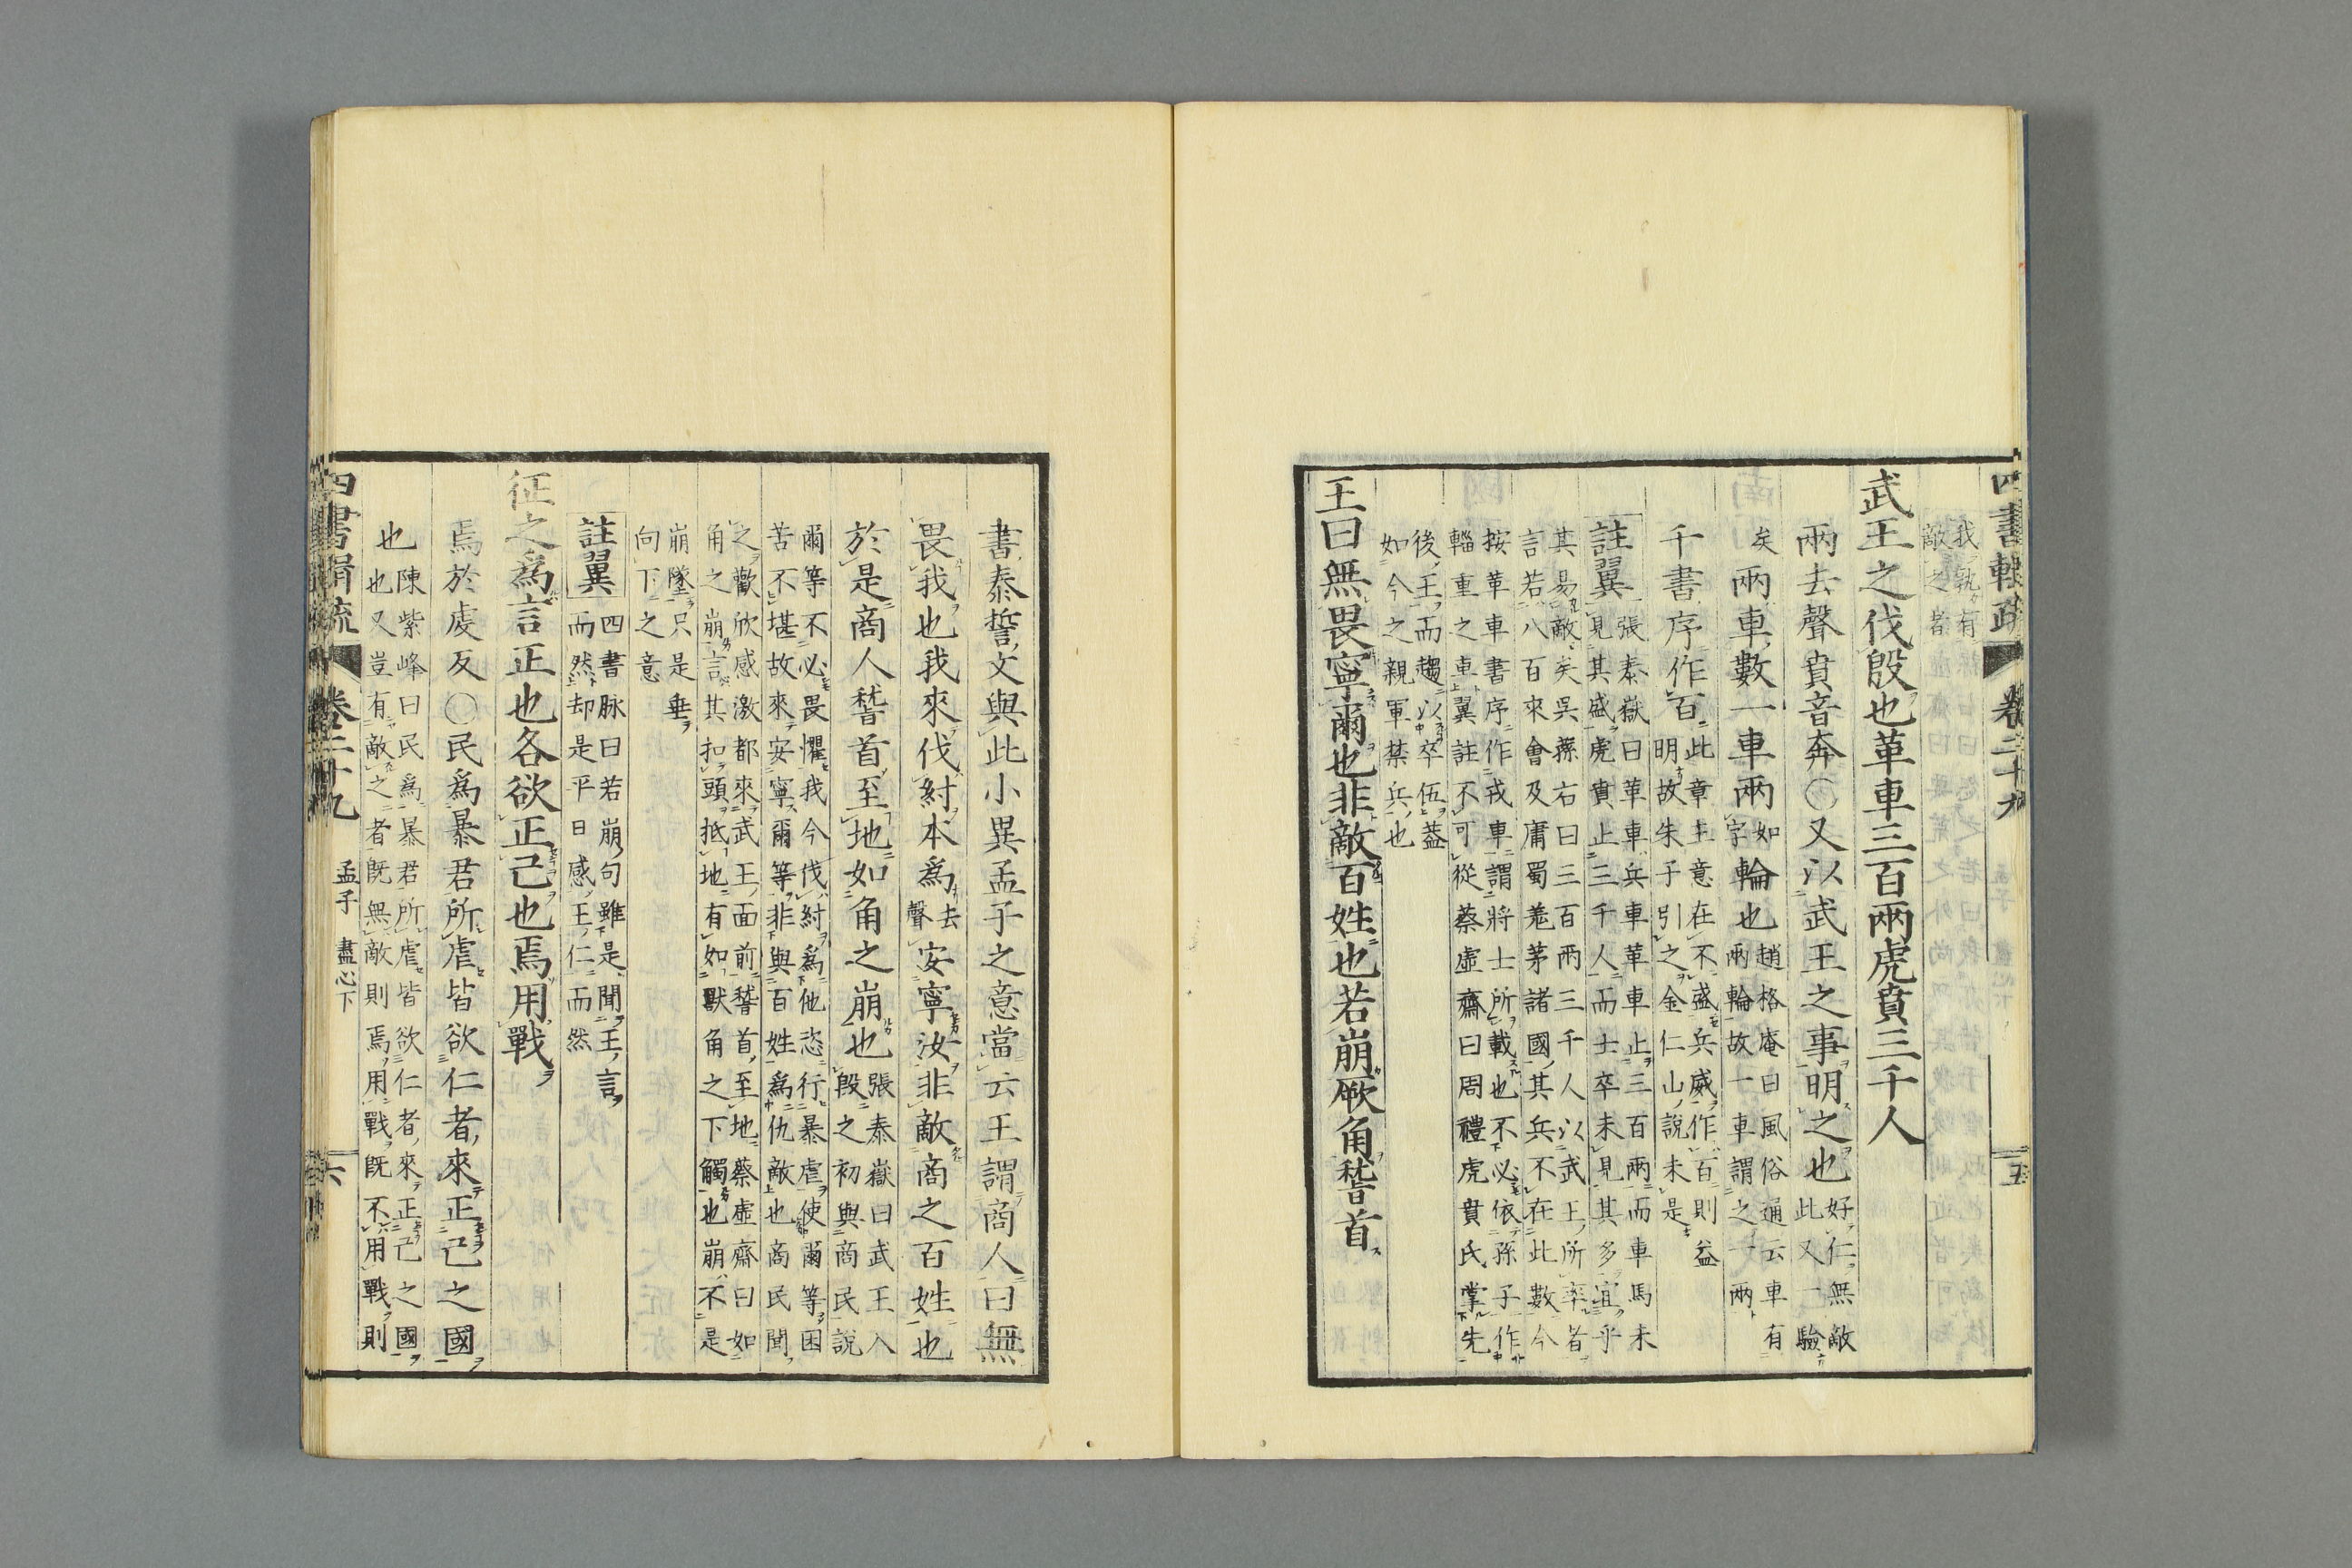 四書輯疏
卷二十九
五
我孰有
敵之者
武王之伐殷也革車三百兩虎賁三千人
兩去聲賁音奔○又以武王之事明之也
好仁無敵
此又一驗
矣
兩車數一車兩
如
字
輪也
趙格庵曰風俗通云車有
兩輪故一車謂之一兩
千書序作百
此章主意在不盛兵威作百則益
明故朱子引之金仁山說未是
註翼
張泰嶽曰革車兵車革車止三百兩而車馬未
見其盛虎賁止三千人而士卒未見其多宜乎
其易敵矣吳蓀右曰三百兩三千人以武王所率者
言若八百來會及庸蜀羌茅諸國其兵不在此數今
按革車書序作戎車謂將士所載也不必依孫子作
輜重之車翼註不可從蔡虛齋曰周禮虎賁氏掌先
後王而趨以卒伍蓋
如今之親軍禁兵也
王曰無畏寧爾也非敵百姓也若崩厥角稽首
書泰誓文與此小異孟子之意當云王謂商人曰無
畏我也我來伐紂本為
去
聲
安寧汝非敵商之百姓也
於是商人稽首至地如角之崩也
張泰嶽曰武王入
殷之初與商民說
爾等不必畏懼我今伐紂為他恣行暴虐使爾等困
苦不堪故來安寧爾等非與百姓為仇敵也商民聞
之歡欣感激都來武王面前稽首至地蔡虛齋曰如
角之崩言其扣頭抵地有如獸角之下觸也崩不是
崩墜只是垂
向下之意
註翼
四書脉曰若崩句雖是聞王言
而然却是平日感王仁而然
征之為言正也各欲正己也焉用戰
焉於虔反○民為暴君所虐皆欲仁者來正己之國
也
陳紫峰曰民為暴君所虐皆欲仁者來正己之國
也又豈有敵之者既無敵則焉用戰既不用戰則
卷二十九
孟子
盡心下
六